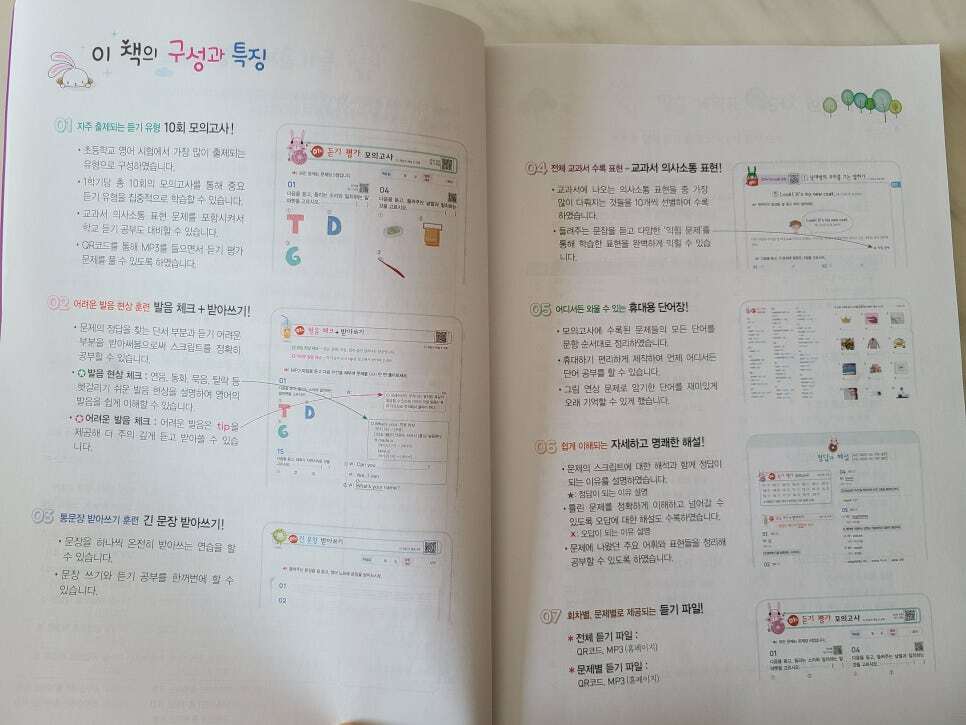 이 책의 구성과 특징
01 자주 출제되는 듣기 유형 10회 모의고사!
• 초등학교 영어 시험에서 가장 많이 출제되는
유형으로 구성하였습니다.
• 1학기당 총 10회의 모의고사를 통해 중요
듣기 유형을 집중적으로 학습할 수 있습니다.
• 교과서 의사소통 표현 문제를 포함시켜서
학교 듣기 공부도 대비할 수 있습니다.
• QR코드를 통해 MP3를 들으면서 듣기 평가
문제를 풀 수 있도록 하였습니다.
듣기 평가 모의고사
01
04
T D
G
02 어려운 발음 현상 훈련 발음 체크 + 받아쓰기!
• 문제의 정답을 찾는 단서 부분과 듣기 어려운
부분을 받아써봄으로써 스크립트를 정확히
공부할 수 있습니다.
• 발음 현상 체크 : 연음, 동화, 묵음, 탈락 등
헷갈리기 쉬운 발음 현상을 설명하여 영어의
발음을 쉽게 이해할 수 있습니다.
• 어려운 발음 체크 : 어려운 발음은 tip을
제공해 더 주의 깊게 듣고 받아쓸 수 있습니
다.
발음 체크 + 받아쓰기
01
T D
G
15
Can you
Yes, I can
What's your name?
03 통문장 받아쓰기 훈련 긴 문장 받아쓰기!
• 문장을 하나씩 온전히 받아쓰는 연습을 할
수 있습니다.
• 문장 쓰기와 듣기 공부를 한꺼번에 할 수
있습니다.
긴 문장 받아쓰기
01
02
04 전체 교과서 수록 표현 - 교과서 의사소통 표현!
• 교과서에 나오는 의사소통 표현들 중 가장
많이 다뤄지는 것들을 10개씩 선별하여 수록
하였습니다.
• 들려주는 문장을 듣고 다양한 '익힘 문제'를
통해 학습한 표현을 완벽하게 익힐 수 있습니
다.
Look! It's my new coat.
05 어디서든 외울 수 있는 휴대용 단어장!
• 모의고사에 수록된 문제들의 모든 단어를
문항 순서대로 정리하였습니다.
• 휴대하기 편리하게 제작하여 언제 어디서든
단어 공부를 할 수 있습니다.
• 그림 연상 문제로 암기한 단어를 재미있게
오래 기억할 수 있게 했습니다.
06 쉽게 이해되는 자세하고 명쾌한 해설!
• 문제의 스크립트에 대한 해석과 함께 정답이
되는 이유를 설명하였습니다.
★: 정답이 되는 이유 설명
• 틀린 문제를 정확하게 이해하고 넘어갈 수
있도록 오답에 대한 해설도 수록하였습니다.
✗: 오답이 되는 이유 설명
• 문제에 나왔던 주요 어휘와 표현들을 정리해
공부할 수 있도록 하였습니다.
정답과 해설
07 회차별, 문제별로 제공되는 듣기 파일!
* 전체 듣기 파일 :
QR코드, MP3 (홈페이지)
* 문제별 듣기 파일 :
QR코드, MP3 (홈페이지)
듣기 평가 모의고사
01
04